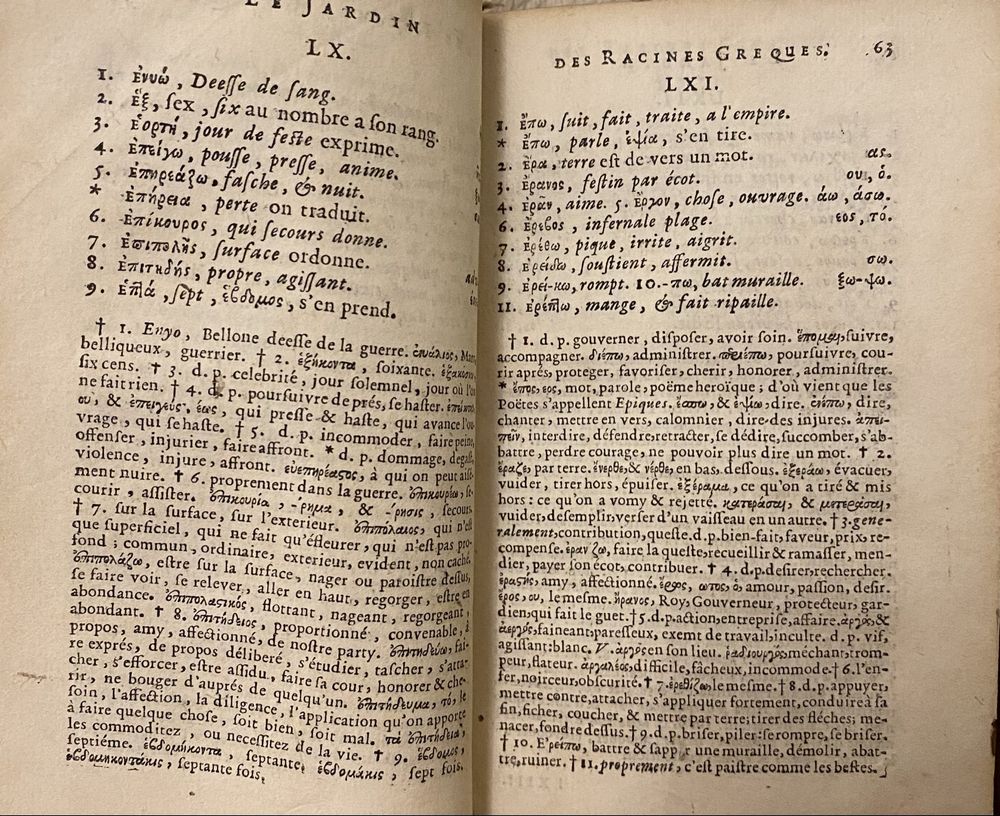 LE JARDIN
LX.
1. Ἐνυώ, Deesse de sang.
2. Ἕξ, sex, six au nombre a son rang.
3. Ἑορτή, jour de feste exprime.
4. Ἐπείγω, pousse, presse, anime.
5. Ἐπηρεάζω, fasche, & nuit.
* Ἐπήρεια, perte on traduit.
6. Ἐπίκουρος, qui secours donne.
7. Ἐπιπολῆς, surface ordonne.
8. Ἐπιτηδής, propre, agissant.
9. Ἑπτά, sept, ἕβδομος, s'en prend.
† 1. Enyo, Bellone deesse de la guerre. ἐνυάλιος,
belliqueux, guerrier. † 2. ἑξήκοντα, soixante.
six cens. † 3. d. p. celebrité, jour solemnel, jour où l'on
ne fait rien. † 4. d. p. poursuivre de prés, se haster.
ου, & ἐπειγεύς, έως, qui presse & haste, qui avance l'ou-
vrage, qui se haste. † 5. d. p. incommoder, faire peine,
offenser, injurier, faire affront. * d. p. dommage, degast,
violence, injure, affront. εὐεπηρέαστος, à qui on peut aisé-
ment nuire. † 6. proprement dans la guerre. ἐπικουρέω, se-
courir, assister. ἐπικουρία, -ρημα, & -ρησις, secours.
† 7. sur la surface, sur l'exterieur. ἐπιπόλαιος, qui n'est
que superficiel, qui ne fait qu'éfleurer, qui n'est pas pro-
fond; commun, ordinaire, exterieur, evident, non caché.
ἐπιπολάζω, estre sur la surface, nager ou paroistre dessus,
se faire voir, se relever, aller en haut, regorger, estre en
abondance. ἐπιπολαστικός, flottant, nageant, regorgeant,
abondant. † 8. ἐπιτήδειος, proportionné, convenable, à
propos, amy, affectionné, de nostre party. ἐπιτηδεύω, fai-
re exprés, de propos déliberé, s'étudier, tascher, s'atta-
cher, s'efforcer, estre assidu, faire sa cour, honorer & che-
rir, ne bouger d'auprés de quelqu'un. ἐπιτήδευμα, τό, le
soin, l'affection, la diligence, l'application qu'on apporte
à faire quelque chose, soit bien, soit mal. τὰ ἐπιτήδεια,
les commoditez, ou necessitez de la vie. † 9. ἕβδομος,
septiéme. ἑβδομήκοντα, septante, ἑβδομάκις, sept fois,
ἑβδομηκοντάκις, septante fois.
DES RACINES GREQUES. 63
LXI.
1. Ἕπω, suit, fait, traite, a l'empire.
* Ἔπω, parle, ἑψία, s'en tire.
2. Ἔρα, terre est de vers un mot. ας.
3. Ἔρανος, festin par écot. ου, ὁ.
4. Ἐρᾶν, aime. 5. Ἔργον, chose, ouvrage. άω, άσω.
6. Ἔρεβος, infernale plage. εος, τό.
7. Ἐρέθω, pique, irrite, aigrit.
8. Ἐρείδω, soustient, affermit. σω.
9. Ἐρεί-κω, rompt. 10. -πω, bat muraille. ξω-ψω.
11. Ἐρέπτω, mange, & fait ripaille.
† 1. d. p. gouverner, disposer, avoir soin. ἕπομαι, suivre,
accompagner. διέπω, administrer. περιέπω, poursuivre, cou-
rir aprés, proteger, favoriser, cherir, honorer, administrer.
* ἔπος, εος, mot, parole; poëme heroïque; d'où vient que les
Poëtes s'appellent Epiques. ἔσπω, & ἐψίω, dire. ἐνέπω, dire,
chanter, mettre en vers, calomnier, dire des injures. ἀπει-
πεῖν, interdire, défendre, retracter, se dédire, succomber, s'ab-
battre, perdre courage, ne pouvoir plus dire un mot. † 2.
ἔραζε, par terre. ἔνερθε, & νέρθε, en bas, dessous. ἐξεράω, évacuer,
vuider, tirer hors, épuiser. ἐξέραμα, ce qu'on a tiré & mis
hors: ce qu'on a vomy & rejetté. κατεράσαι, & μετεράσαι,
vuider, desemplir, verser d'un vaisseau en un autre. † 3. gene-
ralement, contribution, queste. d. p. bien-fait, faveur, prix, re-
compense. ἐρανίζω, faire la queste, recueillir & ramasser, men-
dier, payer son écot, contribuer. † 4. d. p. desirer, rechercher.
ἐραστής, amy, affectionné. ἔρως, ωτος, ὁ, amour, passion, desir.
ἔρος, ου, le mesme. ἤρανος, Roy, Gouverneur, protecteur, gar-
dien, qui fait le guet. † 5. d. p. action, entreprise, affaire. ἀργός, &
ἀεργός, faineant, paresseux, exemt de travail, inculte. d. p. vif,
agissant: blanc. V. ἀργός en son lieu. ῥᾳδιουργός, méchant, trom-
peur, flateur. ἀργαλέος, difficile, fâcheux, incommode. † 6. l'en-
fer, noirceur, obscurité. † 7. ἐρεθίζω, le mesme. † 8. d. p. appuyer,
mettre contre, attacher, s'appliquer fortement, conduire à sa
fin, ficher, coucher, & mettre par terre; tirer des fléches; me-
nacer, fondre dessus. † 9. d. p. briser, piler: se rompre, se briser.
† 10. Ἐρείπω, battre & sapper une muraille, démolir, abat-
tre, ruiner. † 11. proprement, c'est paistre comme les bestes.